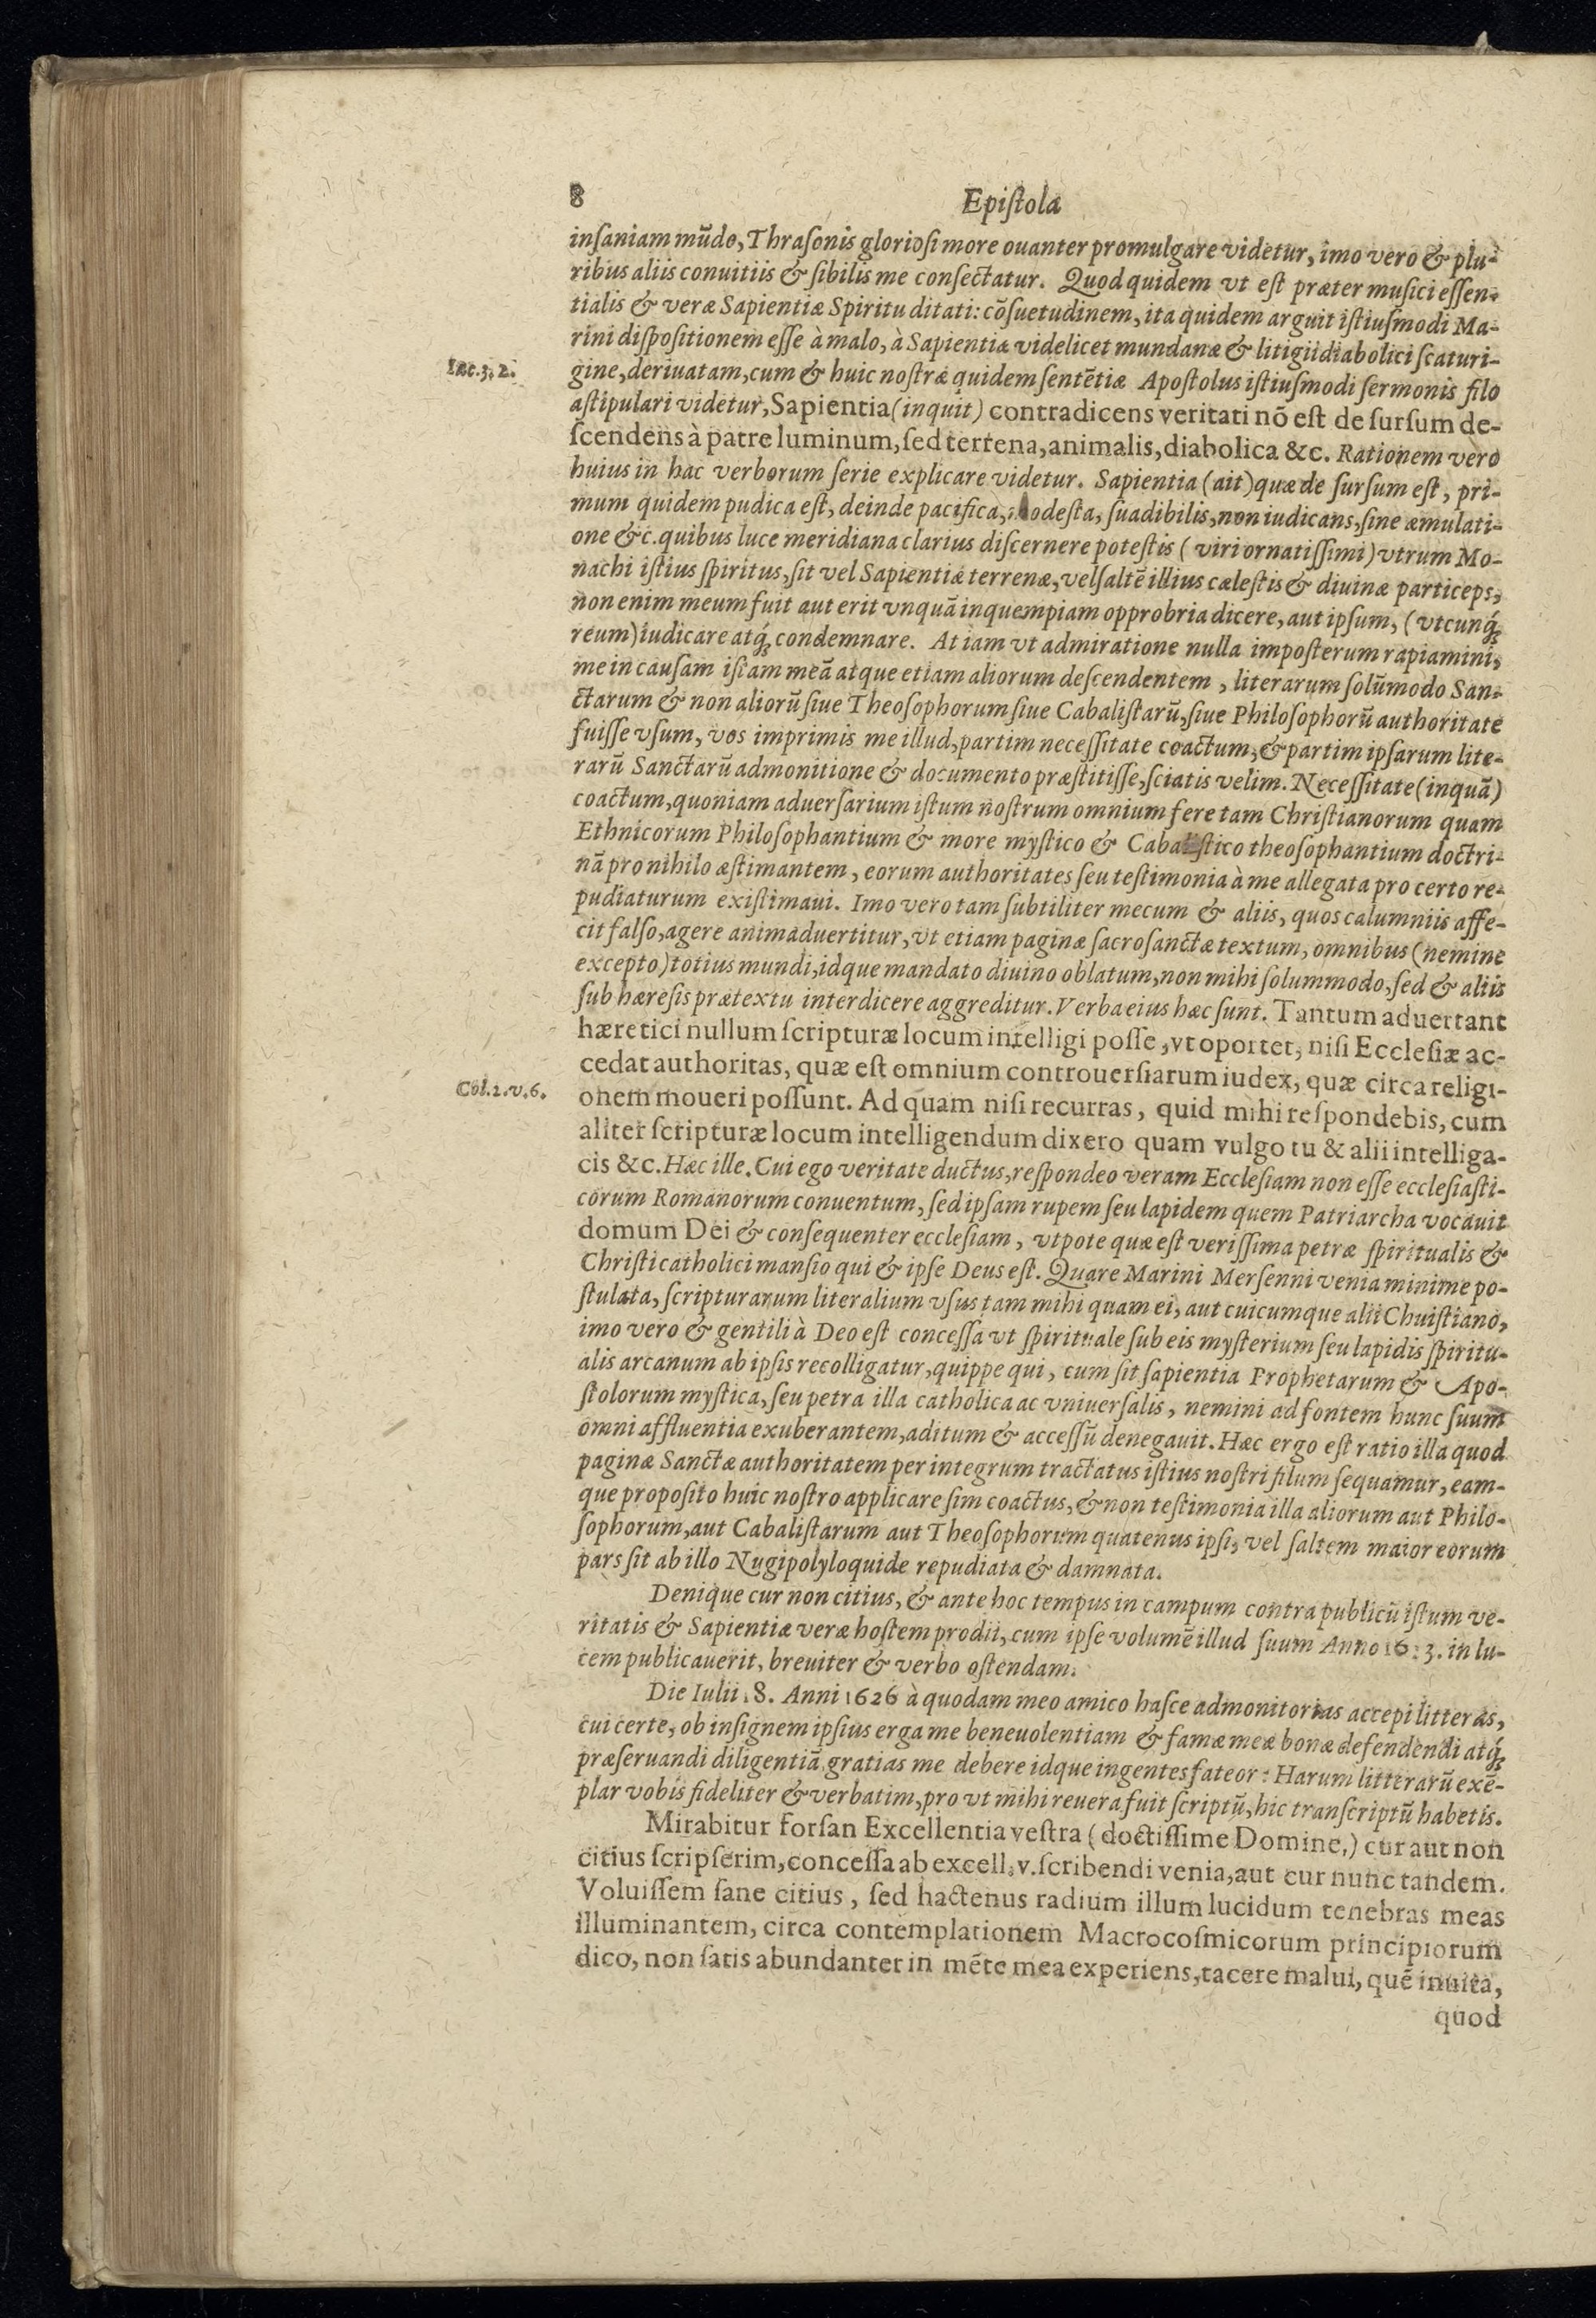 8 Epiſtola
inſaniam mũdo, Thraſonis glorioſi more ouanter promulgare videtur, imo vero & plu-
ribus aliis conuitiis & ſibilis me conſectatur. Quod quidem vt eſt præter muſici eſſen-
tialis & veræ Sapientiæ Spiritu ditati: cõſuetudinem, ita quidem arguit iſtiuſmodi Ma-
rini diſpoſitionem eſſe à malo, à Sapientiæ videlicet mundanæ & litigii diabolici ſcaturi-
Iac. 3. 2.
gine, deriuatam, cum & huic noſtræ quidem ſentẽtiæ Apoſtolus iſtiuſmodi ſermonis filo
aſtipulari videtur, Sapientia (inquit) contradicens veritati nõ eſt de ſurſum de-
ſcendens à patre luminum, ſed terrena, animalis, diabolica &c. Rationem vero
huius in hac verborum ſerie explicare videtur. Sapientia (ait) quæ de ſurſum eſt, pri-
mum quidem pudica eſt, deinde pacifica, modeſta, ſuadibilis, non iudicans, ſine æmulati-
one &c. quibus luce meridiana clarius diſcernere poteſtis (viri ornatiſſimi) vtrum Mo-
nachi iſtius ſpiritus, ſit vel Sapientiæ terrenæ, vel ſaltẽ illius cæleſtis & diuinæ particeps,
non enim meum fuit aut erit vnquã in quempiam opprobria dicere, aut ipſum, (vtcunq́;
reum) iudicare atq́; condemnare. At iam vt admiratione nulla impoſterum rapiamini,
me in cauſam iſtam meã atque etiam aliorum deſcendentem, literarum ſolũmodo San-
ctarum & non aliorũ ſiue Theoſophorum ſiue Cabaliſtarũ, ſiue Philoſophorũ authoritate
fuiſſe vſum, vos imprimis me illud, partim neceſſitate coactum, & partim ipſarum lite-
rarũ Sanctarũ admonitione & documento præſtitiſſe, ſciatis velim. Neceſſitate (inquã)
coactum, quoniam aduerſarium iſtum noſtrum omnium fere tam Chriſtianorum quam
Ethnicorum Philoſophantium & more myſtico & Cabaliſtico theoſophantium doctri-
nã pro nihilo æſtimantem, eorum authoritates ſeu teſtimonia à me allegata pro certo re-
pudiaturum exiſtimaui. Imo vero tam ſubtiliter mecum & aliis, quos calumniis affe-
cit falſo, agere animaduertitur, vt etiam paginæ ſacroſanctæ textum, omnibus (nemine
excepto) totius mundi, idque mandato diuino oblatum, non mihi ſolummodo, ſed & aliis
ſub hæreſis prætextu interdicere aggreditur. Verba eius hæc ſunt. Tantum aduertant
hæretici nullum ſcripturæ locum intelligi poſſe, vt oportet, niſi Eccleſiæ ac-
cedat authoritas, quæ eſt omnium controuerſiarum iudex, quæ circa religi-
Col. 2. v. 6.
onem moueri poſſunt. Ad quam niſi recurras, quid mihi reſpondebis, cum
aliter ſcripturæ locum intelligendum dixero quam vulgo tu & alii intelliga-
cis &c. Hæc ille. Cui ego veritate ductus, reſpondeo veram Eccleſiam non eſſe eccleſiaſti-
corum Romanorum conuentum, ſed ipſam rupem ſeu lapidem quem Patriarcha vocauit
domum Dei & conſequenter eccleſiam, vtpote quæ eſt veriſſima petræ ſpiritualis &
Chriſti catholici manſio qui & ipſe Deus eſt. Quare Marini Merſenni venia minime po-
ſtulata, ſcripturarum literalium vſus tam mihi quam ei, aut cuicumque alii Chuiſtiano,
imo vero & gentili à Deo eſt conceſſa vt ſpirituale ſub eis myſterium ſeu lapidis ſpiritu-
alis arcanum ab ipſis recolligatur, quippe qui, cum ſit ſapientia Prophetarum & Apo-
ſtolorum myſtica, ſeu petra illa catholica ac vniuerſalis, nemini ad fontem hunc ſuum
omni affluentia exuberantem, aditum & acceſſũ denegauit. Hæc ergo eſt ratio illa quod
paginæ Sanctæ authoritatem per integrum tractatus iſtius noſtri filum ſequamur, eam-
que propoſito huic noſtro applicare ſim coactus, & non teſtimonia illa aliorum aut Philo-
ſophorum, aut Cabaliſtarum aut Theoſophorum quatenus ipſi, vel ſaltem maior eorum
pars ſit ab illo Nugipolyloquide repudiata & damnata.
Denique cur non citius, & ante hoc tempus in campum contra publicũ iſtum ve-
ritatis & Sapientiæ veræ hoſtem prodii, cum ipſe volumẽ illud ſuum Anno 16:3. in lu-
cem publicauerit, breuiter & verbo oſtendam.
Die Iulii 18. Anni 1626 à quodam meo amico haſce admonitorias accepi litteras,
cui certe, ob inſignem ipſius erga me beneuolentiam & famæ meæ bonæ defendendi atq́;
præſeruandi diligentiã gratias me debere idque ingentes fateor: Harum litterarũ exẽ-
plar vobis fideliter & verbatim, pro vt mihi reuera fuit ſcriptũ, hic tranſcriptũ habetis.
Mirabitur forſan Excellentia veſtra (doctiſſime Domine,) cur aut non
citius ſcripſerim, conceſſa ab excell. v. ſcribendi venia, aut cur nunc tandem.
Voluiſſem ſane citius, ſed hactenus radium illum lucidum tenebras meas
illuminantem, circa contemplationem Macrocoſmicorum principiorum
dico, non ſatis abundanter in mẽte mea experiens, tacere malui, quẽ inuita,
quod